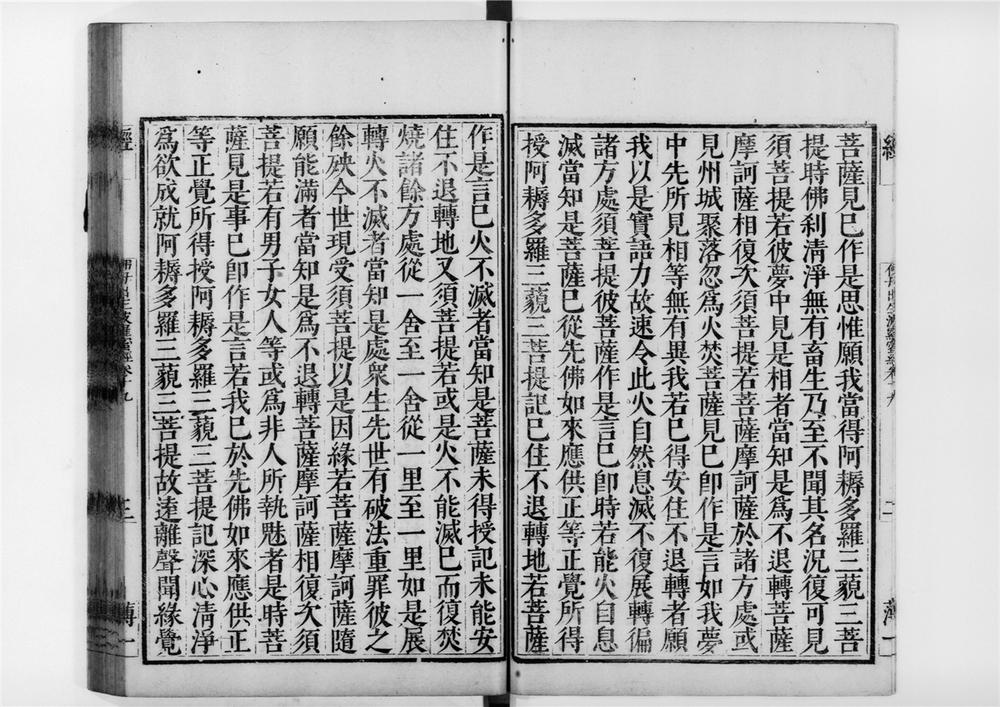 菩薩見已作是思惟願我當得阿耨多羅三藐三菩
提時佛刹清淨無有畜生乃至不聞其名況復可見
須菩提若彼夢中見是相者當知是爲不退轉菩薩
摩訶薩相復次須菩提若菩薩摩訶薩於諸方處或
見州城聚落忽爲火焚菩薩見已卽作是言如我夢
中先所見相等無有異我若已得安住不退轉者願
我以是實語力故速令此火自然息滅不復展轉徧
諸方處須菩提彼菩薩作是言已卽時若能火自息
滅當知是菩薩已從先佛如來應供正等正覺所得
授阿耨多羅三藐三菩提記已住不退轉地若菩薩
經
二
薄一
作是言已火不滅者當知是菩薩未得授記未能安
住不退轉地又須菩提若或是火不能滅已而復焚
燒諸餘方處從一舍至一舍從一里至一里如是展
轉火不滅者當知是處衆生先世有破法重罪彼之
餘殃今世現受須菩提以是因緣若菩薩摩訶薩隨
願能滿者當知是爲不退轉菩薩摩訶薩相復次須
菩提若有男子女人等或爲非人所執魅者是時菩
薩見是事已卽作是言若我已於先佛如來應供正
等正覺所得授阿耨多羅三藐三菩提記深心清淨
爲欲成就阿耨多羅三藐三菩提故遠離聲聞緣覺
經
三
薄一